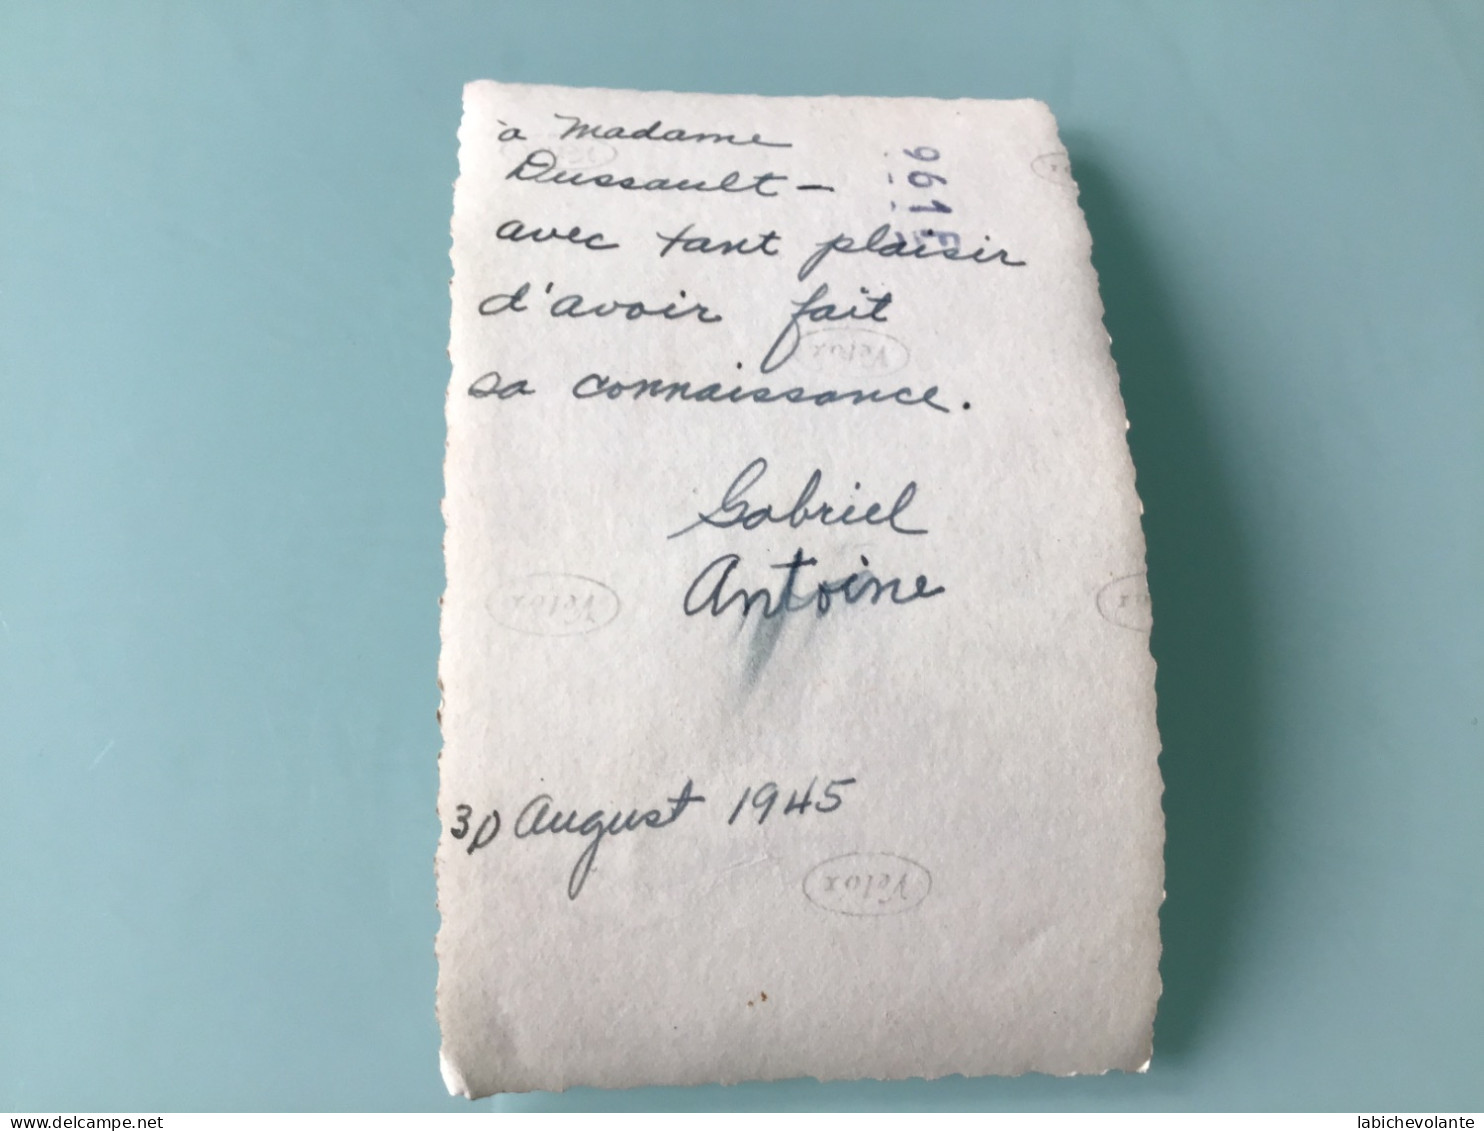 à Madame
Dussault –
avec tant plaisir
d'avoir fait
sa connaissance.
Gabriel
Antoine
30 August 1945
961
Velox
Velox
Velox
delcampe.net
labichevolante